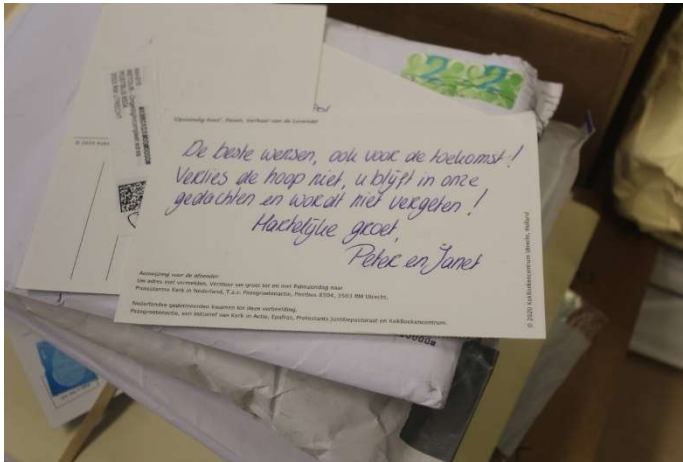 De beste wensen, ook voor de toekomst!
Verlies de hoop niet, u blijft in onze
gedachten en wordt niet vergeten!
Hartelijke groet,
Peter en Janet
Aanwijzing voor de afzender
Uw adres niet vermelden. Verstuur uw groet tot en met Palmzondag naar
Protestantse Kerk in Nederland, T.a.v. Paasgroetenactie, Postbus 8504, 3503 RM Utrecht.
Nederlandse gedetineerden kwamen tot deze verbeelding.
Paasgroetenactie, een initiatief van Kerk in Actie, Epafras, Protestants Justitiepastoraat en KokBoekencentrum.
© 2020 KokBoekencentrum Utrecht, Holland
© 2020 Kok
2
2